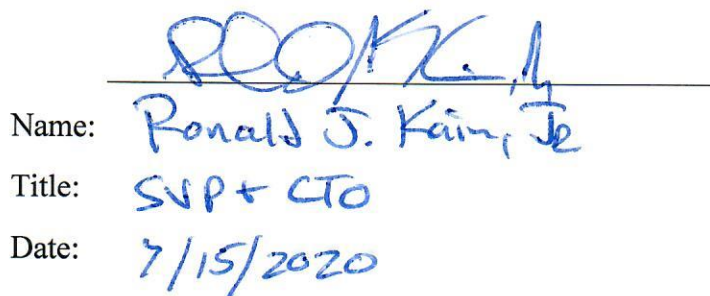 Name: Ronald J. Kain, Jr
Title: SVP + CTO
Date: 7/15/2020